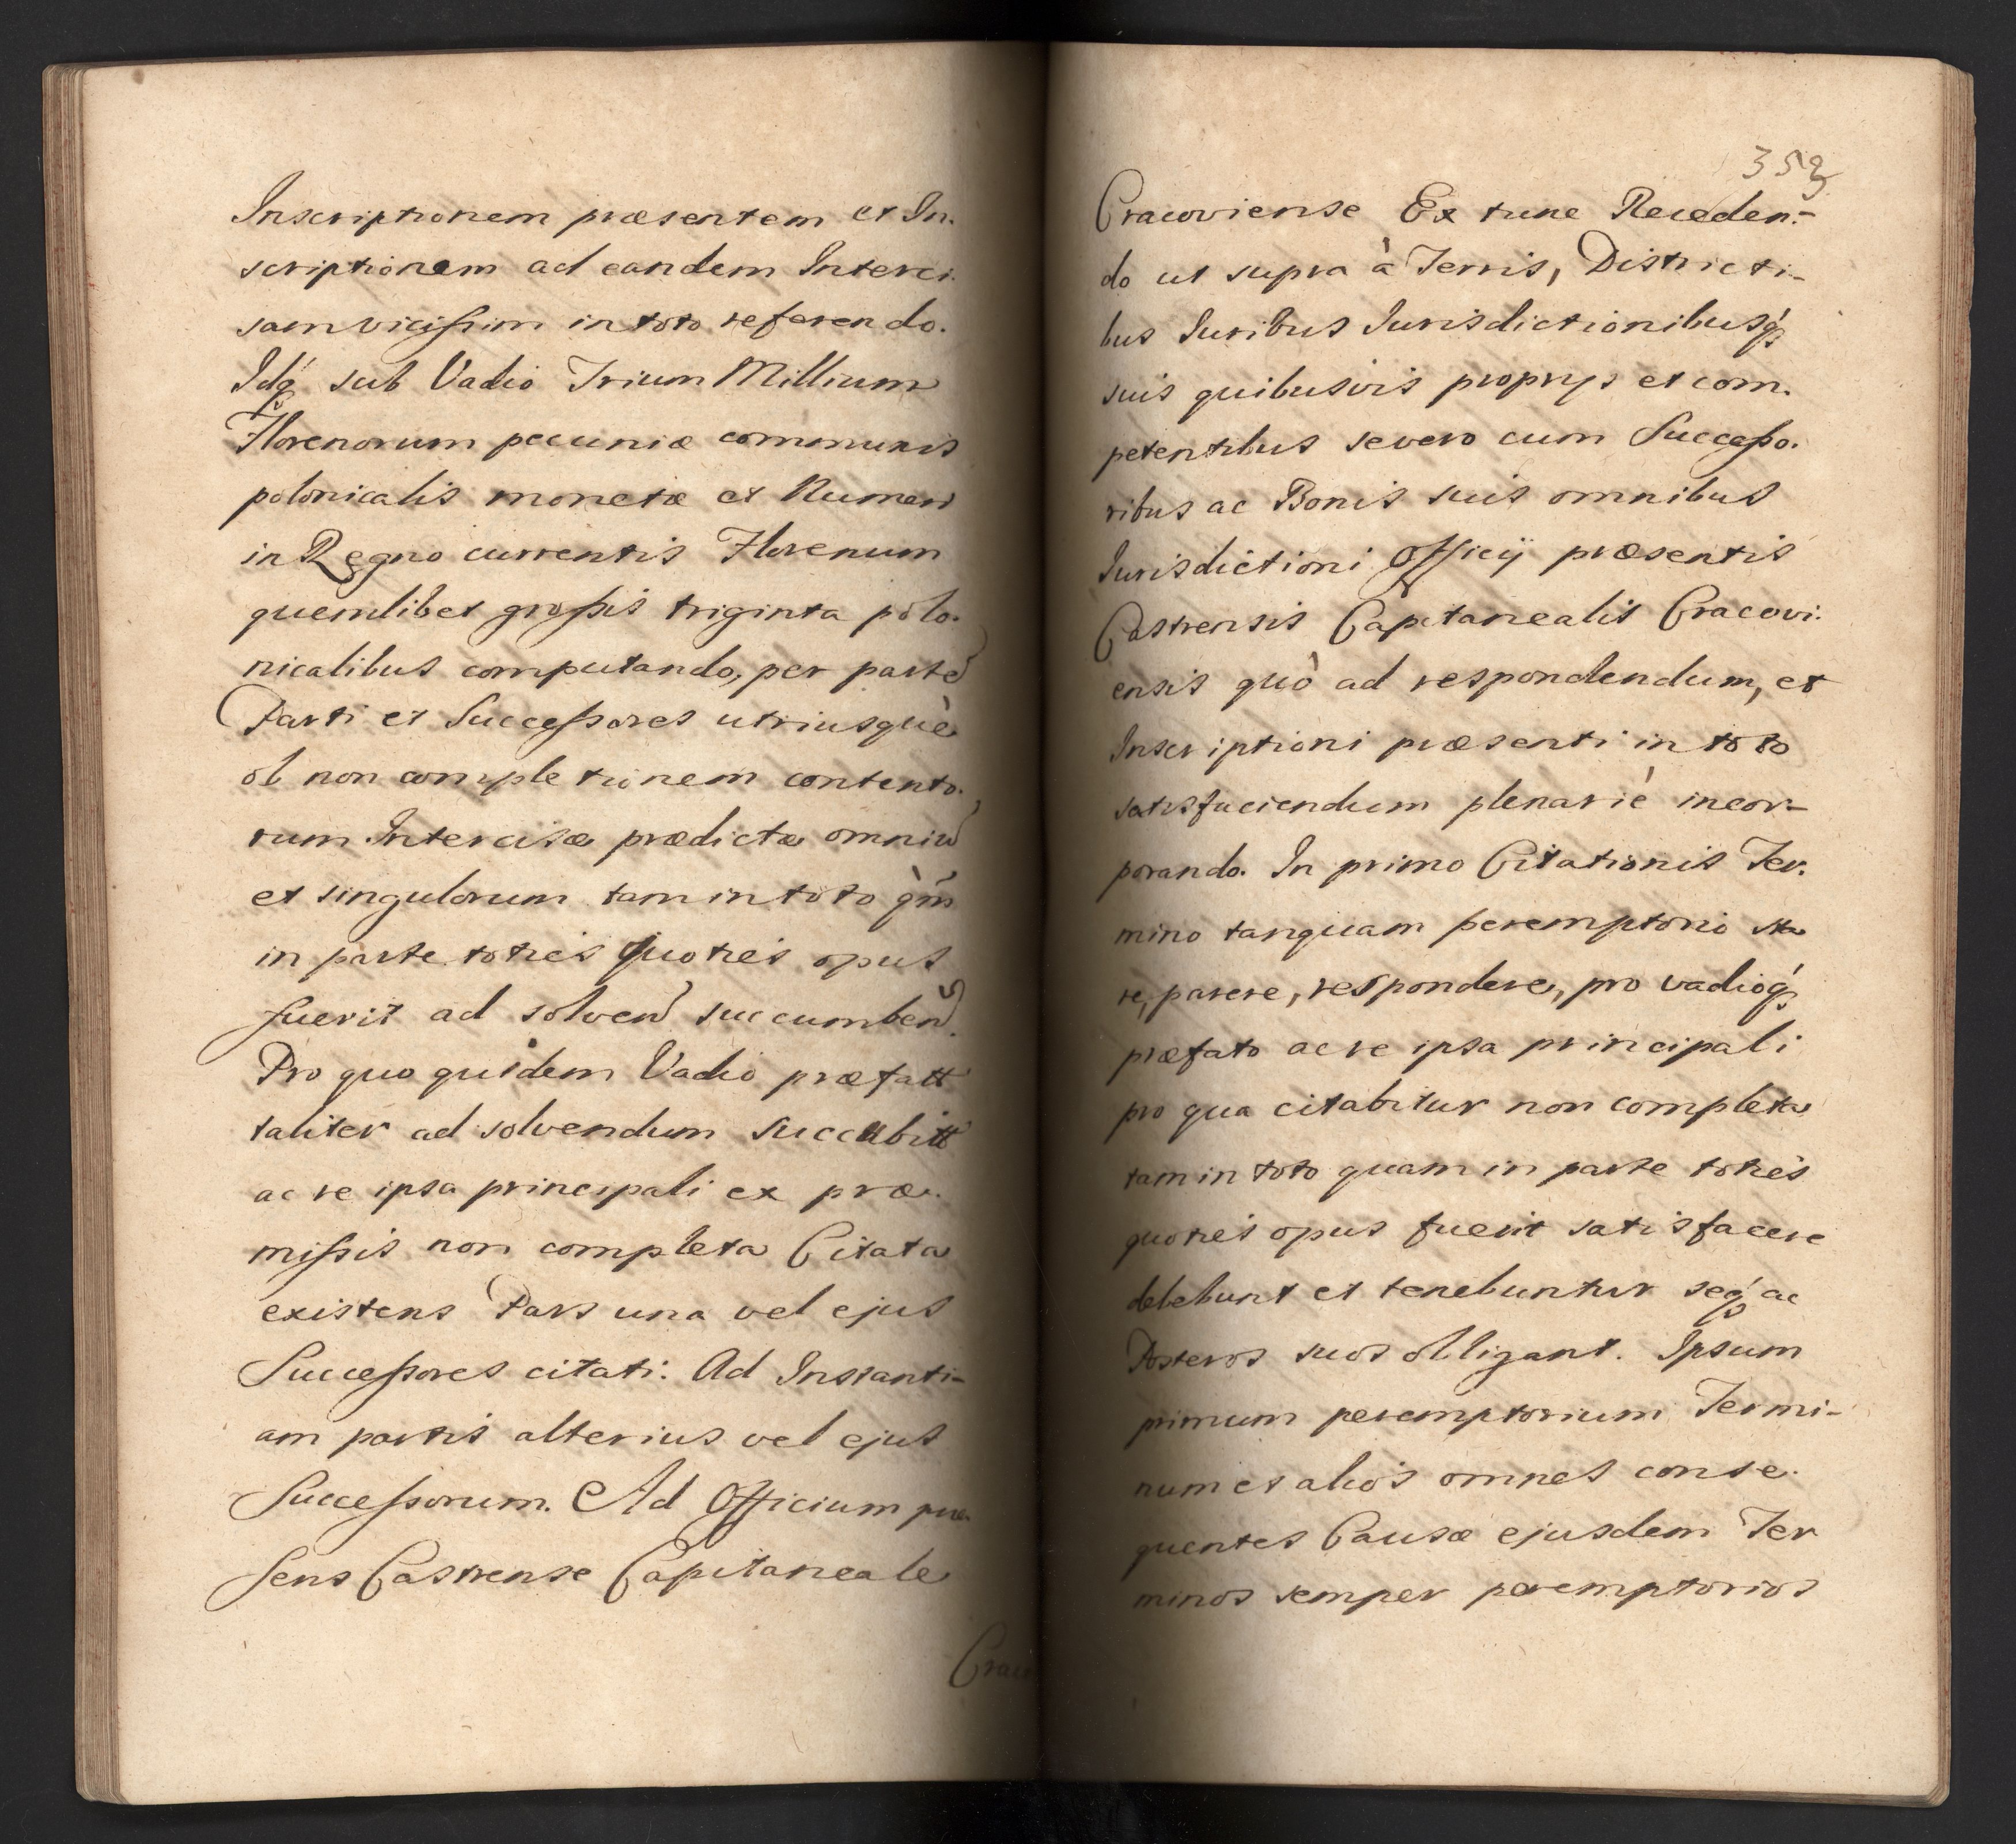 Inscriptionem præsentem et In.
scriptionem ad eandem Interci.
sam vicißim in toto referendo.
Idq́ꝫ sub Vadio Trium Millium
Florenorum pecuniæ communis
polonicalis monetæ et Numeri
in Regno currentis Florenum
quemlibet großis triginta polo.
nicalibus computando, per parte͂
Parti et Succeßores utriusquè
ob non completionem contento.
rum Intercisæ prædictæ omniu͂
et singulorum tam in toto q̀m̃
in parte toties quoties opus
fuerit ad solven͂ succumben͂.
Pro quo quidem Vadio præfatt
taliter ad solvendum succubitt
ac re ipsa principali ex præ.
mißis non completa Citata
existens Pars una vel ejus
Succeßores citati: Ad Instanti-
am partis alterius vel ejus
Succeßorum. Ad Officium præ.
sens Castrense Capitaneale
Crac
353
Cracoviense Ex tunc Receden.-
do ut supra à Terris, Districti-
bus Iuribus Iurisdictionibusq́ꝫ
suis quibusvis proprijs et com.
petentibus severo cum Succeßo.
ribus ac Bonis suis omnibus
Iurisdictioni Officij præsentis
Castrensis Capitanealis Cracovi.
ensis quò ad respondendum, et
Inscriptioni præsenti in toto
satisfaciendum plenariè incor-
porando. In primo Citationis Ter.
mino tanquam peremptorio sta
re, parere, respondere, pro vadioq́ꝫ
præfato ac re ipsa principali
pro qua citabitur non completa
tam in toto quam in parte toties
quoties opus fuerit satisfacere
debebunt et tenebuntur seq́ꝫ ac
Posteros suos obligant. Ipsum
primum peremptorium Termi-
num et alios omnes conse.
quentes Causæ ejusdem Ter
minos semper peremptorios